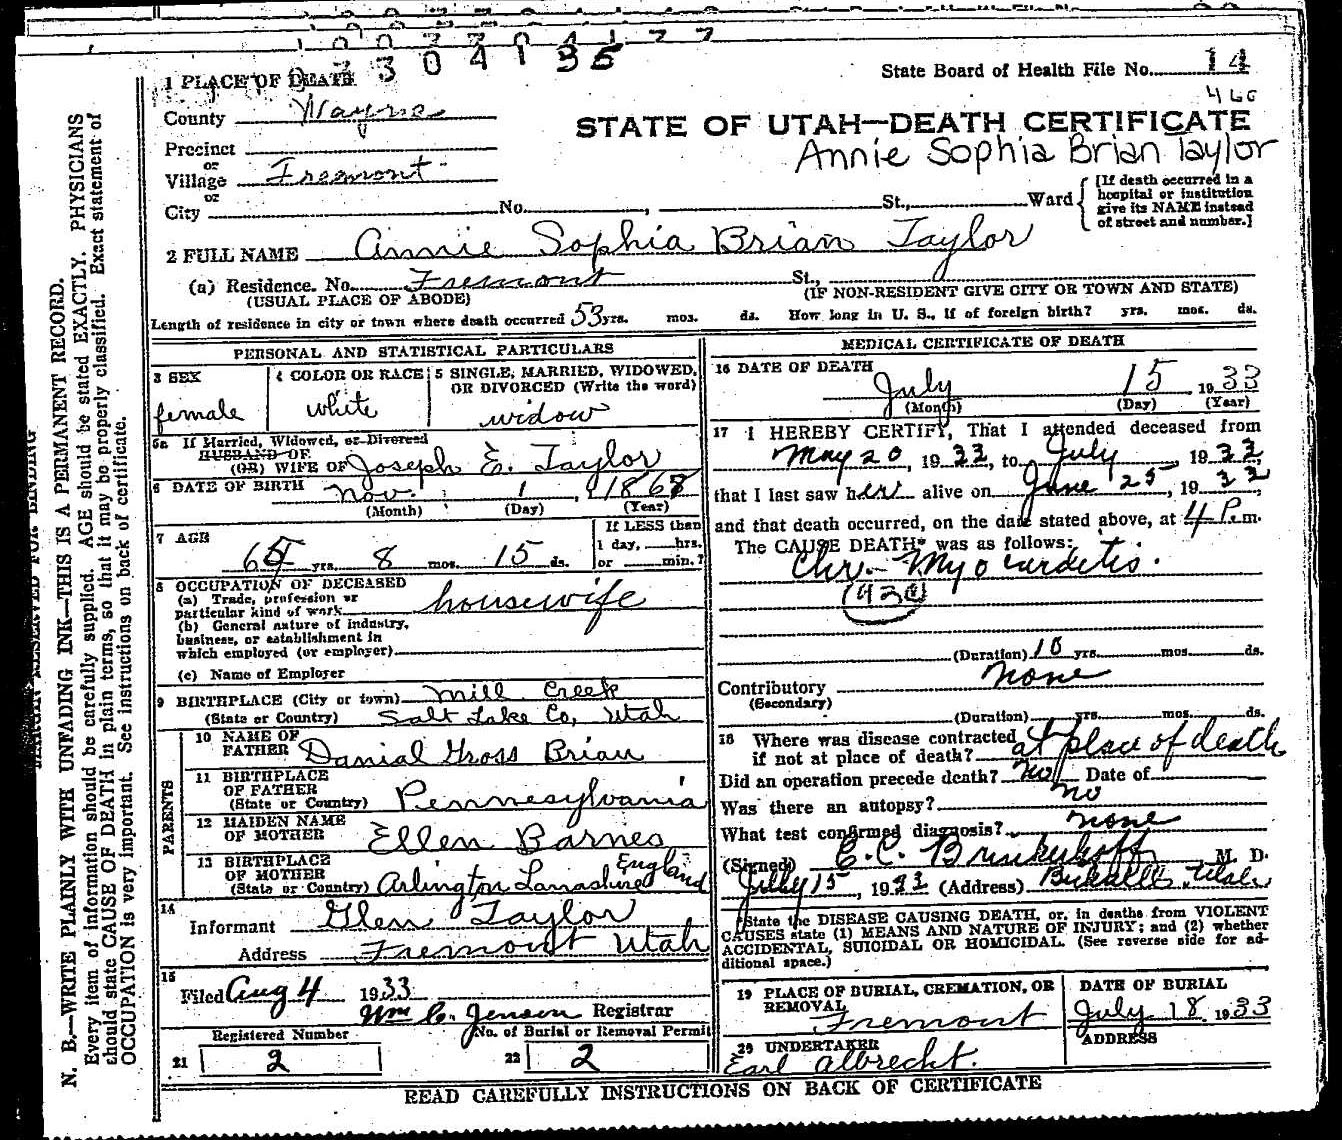 3304135
State Board of Health File No. 14
460
1 PLACE OF DEATH
County Wayne
STATE OF UTAH—DEATH CERTIFICATE
Annie Sophia Brian Taylor
Precinct
or
Village Fremont
or
City No. , St., Ward
[If death occurred in a hospital or institution give its NAME instead of street and number.]
2 FULL NAME Annie Sophia Brian Taylor
(a) Residence. No. Fremont St.,
(USUAL PLACE OF ABODE) (IF NON-RESIDENT GIVE CITY OR TOWN AND STATE)
Length of residence in city or town where death occurred 53 yrs. mos. ds. How long in U. S., if of foreign birth? yrs. mos. ds.
PERSONAL AND STATISTICAL PARTICULARS
3 SEX
female
4 COLOR OR RACE
white
5 SINGLE, MARRIED, WIDOWED, OR DIVORCED (Write the word)
widow
5a If Married, Widowed, or Divorced
HUSBAND OF
(OR) WIFE OF Joseph E. Taylor
6 DATE OF BIRTH Nov. 1, 1868
(Month) (Day) (Year)
7 AGE
8 mos. 15 ds.
If LESS than 1 day, hrs. or min.?
8 OCCUPATION OF DECEASED
(a) Trade, profession or particular kind of work housewife
(b) General nature of industry, business, or establishment in which employed (or employer)
(c) Name of Employer
9 BIRTHPLACE (City or town) Mill Creek
(State or Country) Salt Lake Co, Utah
PARENTS
10 NAME OF FATHER Danial Gross Brian
11 BIRTHPLACE OF FATHER (State or Country) Pennesylvania
12 MAIDEN NAME OF MOTHER Ellen Barnes
13 BIRTHPLACE OF MOTHER (State or Country) Arlington Lanashire England
14 Informant Glen Taylor
Address Fremont Utah
15 Filed Aug 4 1933
Wm C. Jensen Registrar
Registered Number No. of Burial or Removal Permit
21 2 22 2
MEDICAL CERTIFICATE OF DEATH
16 DATE OF DEATH
July 15, 1933
(Month) (Day) (Year)
17 I HEREBY CERTIFY, That I attended deceased from
May 20, 1933, to July, 1933
that I last saw her alive on June 25, 1933,
and that death occurred, on the date stated above, at 4 P.m.
The CAUSE DEATH* was as follows:
Chr. Myocarditis.
(Duration) 10 yrs. mos. ds.
Contributory none
(Secondary)
(Duration) yrs. mos. ds.
18 Where was disease contracted
if not at place of death? at place of death
Did an operation precede death? no Date of
Was there an autopsy? no
What test confirmed diagnosis? none
(Signed) E. C. Brinkerhoff M. D.
July 15, 1933 (Address) Utah
*State the DISEASE CAUSING DEATH, or, in deaths from VIOLENT
CAUSES state (1) MEANS AND NATURE OF INJURY; and (2) whether
ACCIDENTAL, SUICIDAL OR HOMICIDAL. (See reverse side for ad-
ditional space.)
19 PLACE OF BURIAL, CREMATION, OR REMOVAL
Fremont
DATE OF BURIAL
July 18 1933
20 UNDERTAKER
Earl Albrecht.
ADDRESS
READ CAREFULLY INSTRUCTIONS ON BACK OF CERTIFICATE
MARGIN RESERVED FOR BINDING
N. B.—WRITE PLAINLY WITH UNFADING INK—THIS IS A PERMANENT RECORD.
Every item of information should be carefully supplied. AGE should be stated EXACTLY. PHYSICIANS
should state CAUSE OF DEATH in plain terms, so that it may be properly classified. Exact statement of
OCCUPATION is very important. See instructions on back of certificate.